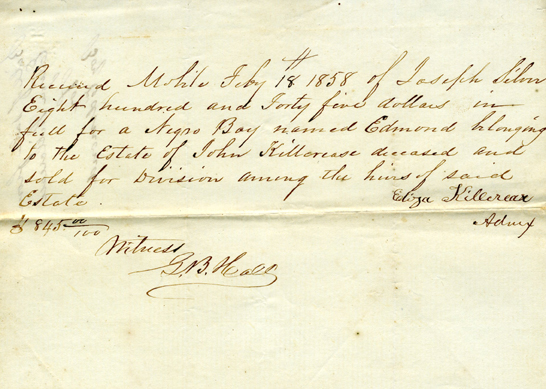 Received Mobile Feby 18th 1858 of Joseph Silver
Eight hundred and Forty five dollars in
full for a Negro Boy named Edmond belonging
to the Estate of John Killcrease deceased and
sold for Division among the heirs of said
Estate.
Eliza Killcreas
$845 00/100
Admx
Witness
G.B. Hall